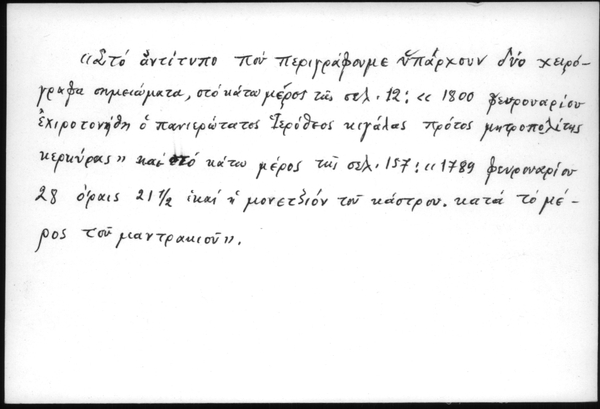 «Στό ἀντίτυπο πού περιγράφουμε ὑπάρχουν δύο χειρό-
γραφα σημειώματα, στό κάτω μέρος τῆς σελ. 12: « 1800 φευρουαρίου
ἐχιροτονήθη ὁ πανιερώτατος Ἱερόθεος κιγάλας πρότος μητροπολίτης
κερκύρας» καί στό κάτω μέρος τῆς σελ. 157: «1789 φευρουαρίου
28 ὁραις 21 1/2 ἐκαί ἡ μονετζιόν τοῦ κάστρου. κατά τό μέ-
ρος τοῦ μαντρακιοῦ».